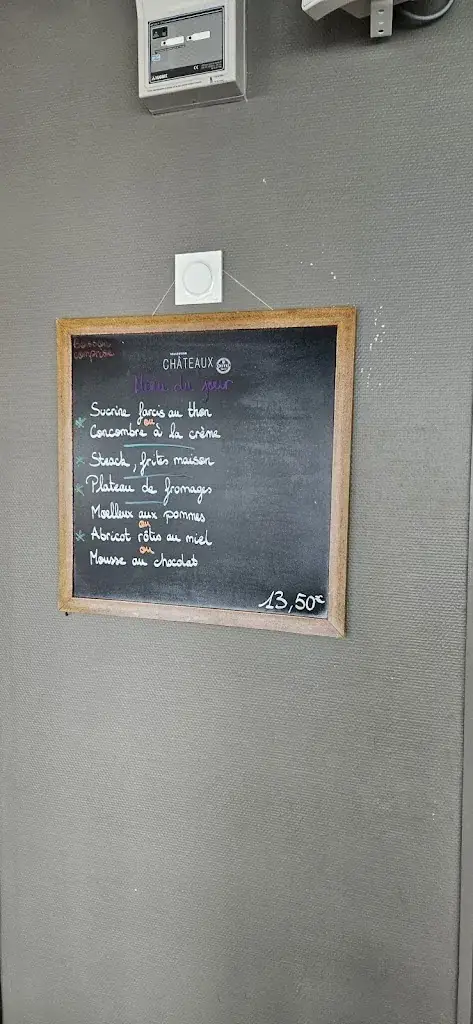 Boisson
comprise
CHÂTEAUX
Menu du jour
Sucrine farcis au thon
ou
Concombre à la crème
Steack, frites maison
Plateau de fromages
Moelleux aux pommes
ou
Abricot rôtis au miel
ou
Mousse au chocolat
13,50€